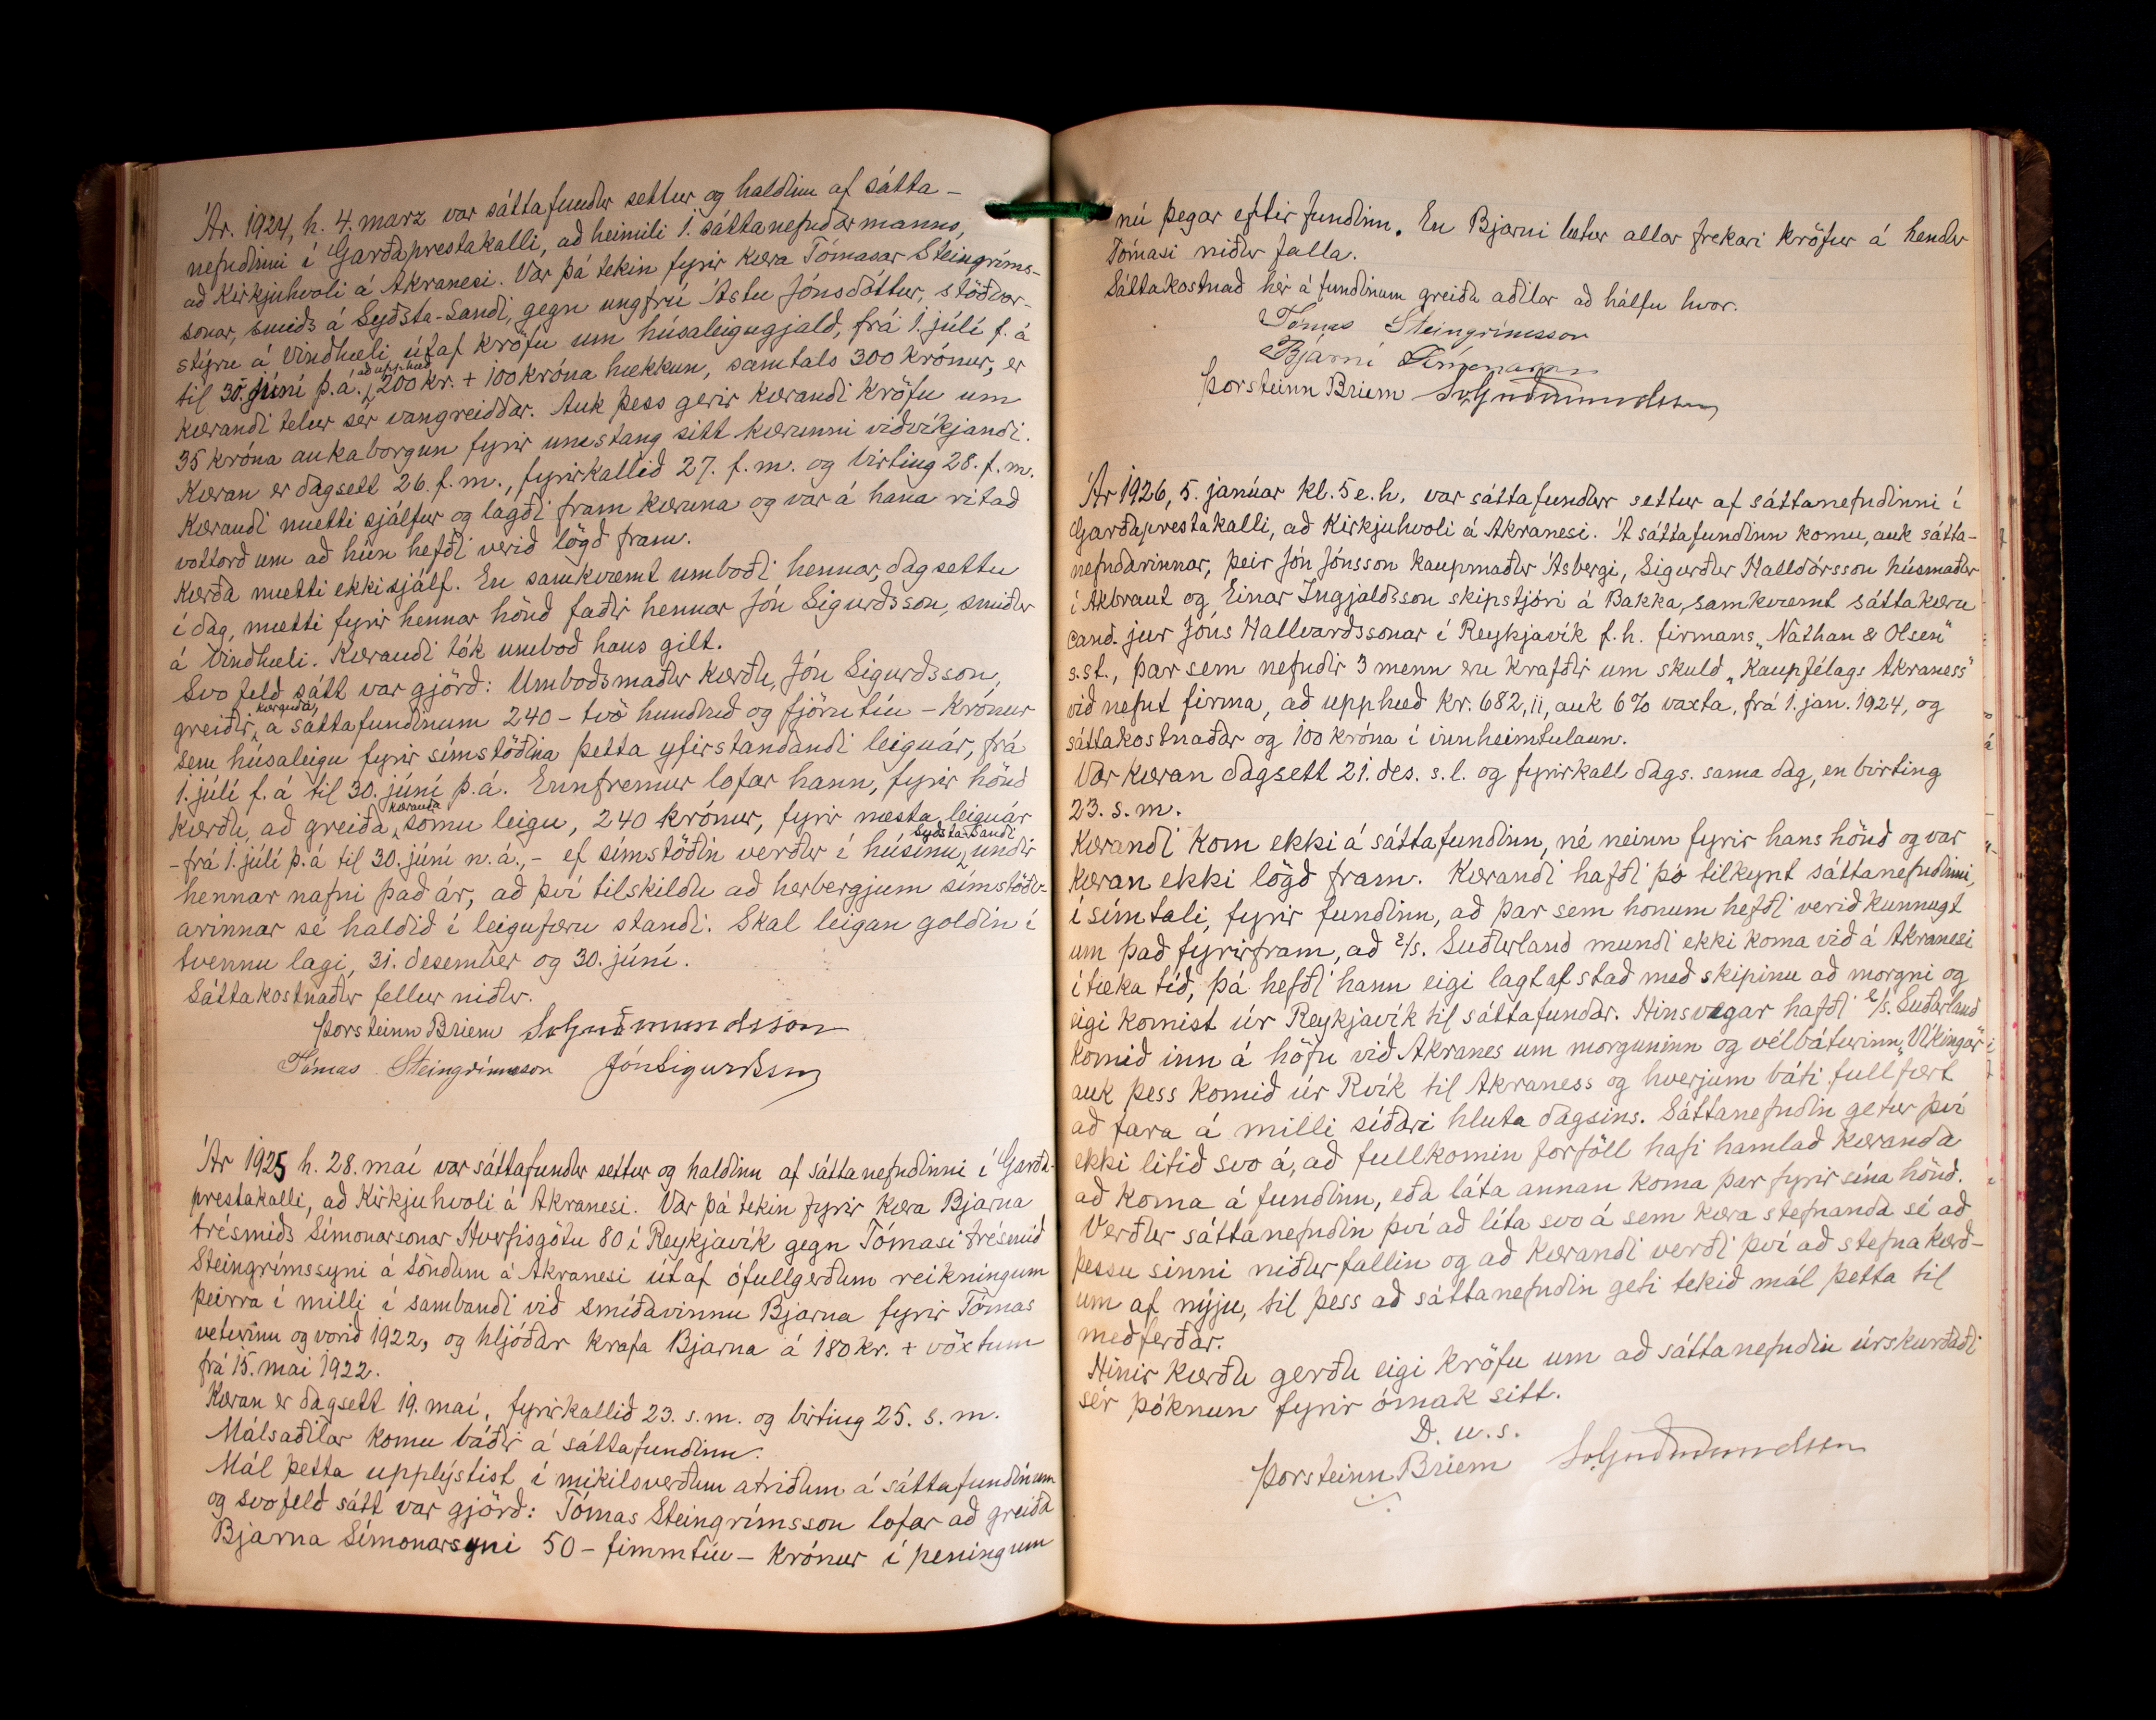 Ár. 1924, h. 4. marz var sáttafundur settur og haldinn af sátta-
nefndinni í Garðaprestakalli, að heimili 1. sáttanefndarmanns,
að Kirkjuhvoli á Akranesi. Var þá tekin fyrir kæra Tómasar Steingríms-
sonar, smiðs á Syðsta-Sandi, gegn ungfrú Ástu Jónsdóttur, stöðvar-
stýru á Vindhæli, útaf kröfu um húsaleigugjald, frá 1. júlí f. á
til 30. júní þ.á., að upphæð 200 kr. + 100 króna hækkun, samtals 300 krónur, er
kærandi telur sér vangreiddar. Auk þess gerir kærandi kröfu um
35 króna aukaborgun fyrir umstang sitt kærunni viðvíkjandi.
Kæran er dagsett 26. f. m., fyrirkallið 27. f. m. og birting 28. f. m.
Kærandi mætti sjálfur og lagði fram kæruna og var á hana ritað
vottorð um að hún hefði verið lögð fram.
Kærða mætti ekki sjálf. En samkvæmt umboði hennar, dagsettu
í dag, mætti fyrir hennar hönd faðir hennar Jón Sigurðsson, smiður
á Vindhæli. Kærandi tók umboð hans gilt.
Svofeld sátt var gjörð: Umboðsmaður kærðu, Jón Sigurðsson,
greiðir kæranda, á sáttafundinum 240 - tvö hundruð og fjörutíu - krónur
sem húsaleigu fyrir símstöðina þetta yfirstandandi leiguár, frá
1. júlí f. á til 30. júní þ.á. Ennfremur lofar hann, fyrir hönd
kærðu, að greiða kæranda sömu leigu, 240 krónur, fyrir næsta leiguár
- frá 1. júlí þ.á til 30. júní n. á., - ef símstöðin verður í húsinu Syðsta-Sandi, undir
hennar nafni það ár, að því tilskildu að herbergjum símstöðv-
arinnar sé haldið í leigufæru standi. Skal leigan goldin í
tvennu lagi, 31. desember og 30. júní.
Sáttakostnaður fellur niður.
Þorsteinn Briem SvGuðmundsson
Tómas Steingrímsson Jón Sigurðsson
Ár 1925 h. 28. maí var sáttafundur settur og haldinn af sáttanefndinni í Garða-
prestakalli, að Kirkjuhvoli á Akranesi. Var þá tekin fyrir kæra Bjarna
trésmiðs Símonarsonar Hverfisgötu 80 í Reykjavík gegn Tómasi trésmið
Steingrímssyni á Söndum á Akranesi útaf ófullgerðum reikningum
þeirra í milli í sambandi við smíðavinnu Bjarna fyrir Tómas
veturinn og vorið 1922, og hljóðar krafa Bjarna á 180 kr. + vöxtum
frá 15. mai 1922.
Kæran er dagsett 19. maí, fyrirkallið 23. s. m. og birting 25. s. m.
Málsaðilar komu báðir á sáttafundinn.
Mál þetta upplýstist í mikilsverðum atriðum á sáttafundinum
og svofeld sátt var gjörð: Tómas Steingrímsson lofar að greiða
Bjarna Símonarsyni 50 - fimmtíu - krónur í peningum
nú þegar eftir fundinn. En Bjarni lætur allar frekari kröfur á hendur
Tómasi niður falla.
Sáttakostnað hér á fundinum greiða aðilar að hálfu hvor.
Tómas Steingrímsson
Bjarni Símonarson
Þorsteinn Briem SvGuðmundsson
Ár 1926, 5. janúar kl. 5 e. h. var sáttafundur settur af sáttanefndinni í
Garðaprestakalli, að Kirkjuhvoli á Akranesi. Á sáttafundinn komu, auk sátta-
nefndarinnar, þeir Jón Jónsson kaupmaður Ásbergi, Sigurður Halldórsson húsmaður
í Akbraut og Einar Ingjaldsson skipstjóri á Bakka, samkvæmt sáttakæru
cand. jur Jóns Hallvarðssonar í Reykjavík f. h. firmans „Nathan & Olsen"
s.st., þar sem nefndir 3 menn eru krafðir um skuld „Kaupfélags Akraness"
við nefnt firma, að upphæð kr. 682,11, auk 6% vaxta, frá 1. jan. 1924, og
sáttakostnaðar og 100 króna í innheimtulaun.
Var kæran dagsett 21. des. s. l. og fyrirkall dags. sama dag, en birting
23. s. m.
Kærandi kom ekki á sáttafundinn, né neinn fyrir hans hönd og var
kæran ekki lögð fram. Kærandi hafði þó tilkynt sáttanefndinni,
í símtali, fyrir fundinn, að þar sem honum hefði verið kunnugt
um það fyrirfram, að e/s. Suðurland mundi ekki koma við á Akranesi
í tæka tíð, þá hefði hann eigi lagt af stað með skipinu að morgni og
eigi komist úr Reykjavík til sáttafundar. Hinsvegar hafði e/s. Suðurland
komið inn á höfn við Akranes um morguninn og vélbáturinn „Víkingur"
auk þess komið úr Rvík til Akraness og hverjum báti fullfært
að fara á milli síðari hluta dagsins. Sáttanefndin getur því
ekki litið svo á, að fullkomin forföll hafi hamlað kæranda
að koma á fundinn, eða láta annan koma þar fyrir sína hönd.
Verður sáttanefndin því að líta svo á sem kæra stefnanda sé að
þessu sinni niður fallin og að kærandi verði því að stefna kærð-
um af nýju, til þess að sáttanefndin geti tekið mál þetta til
meðferðar.
Hinir kærðu gerðu eigi kröfu um að sáttanefndin úrskurðaði
sér þóknun fyrir ómak sitt.
D. u. s.
Þorsteinn Briem SvGuðmundsson